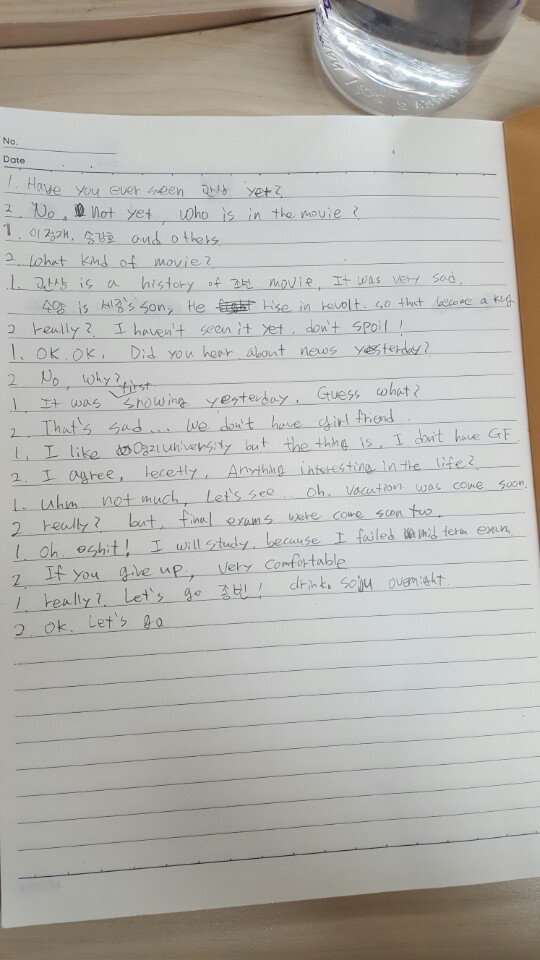 No.
Date
1. Have you ever seen 관상 yet?
2. No, not yet, who is in the movie?
1. 이정재, 송강호 and others.
2. What kind of movie?
1. 관상 is a history of 조선 movie, It was very sad,
수양 is 세종's son, He rise in revolt. so that become a king
2 really? I haven't seen it yet, don't spoil!
1. OK. OK. Did you hear about news yesterday?
2 No, why?
1. It was first snowing yesterday. Guess what?
2. That's sad... We don't have girl friend.
1. I like university but the thing is, I don't have GF.
2. I agree, recetly, Anything interesting in the life?
1. Uhm not much, Let's see.. oh, vacation was come soon.
2. really? but, final exams were come soon too.
1. Oh. shit! I will study, because I failed mid term exam
2. If you give up, very comfortable
1. really? Let's go 종빈! drink soju overnight.
2. OK. Let's go